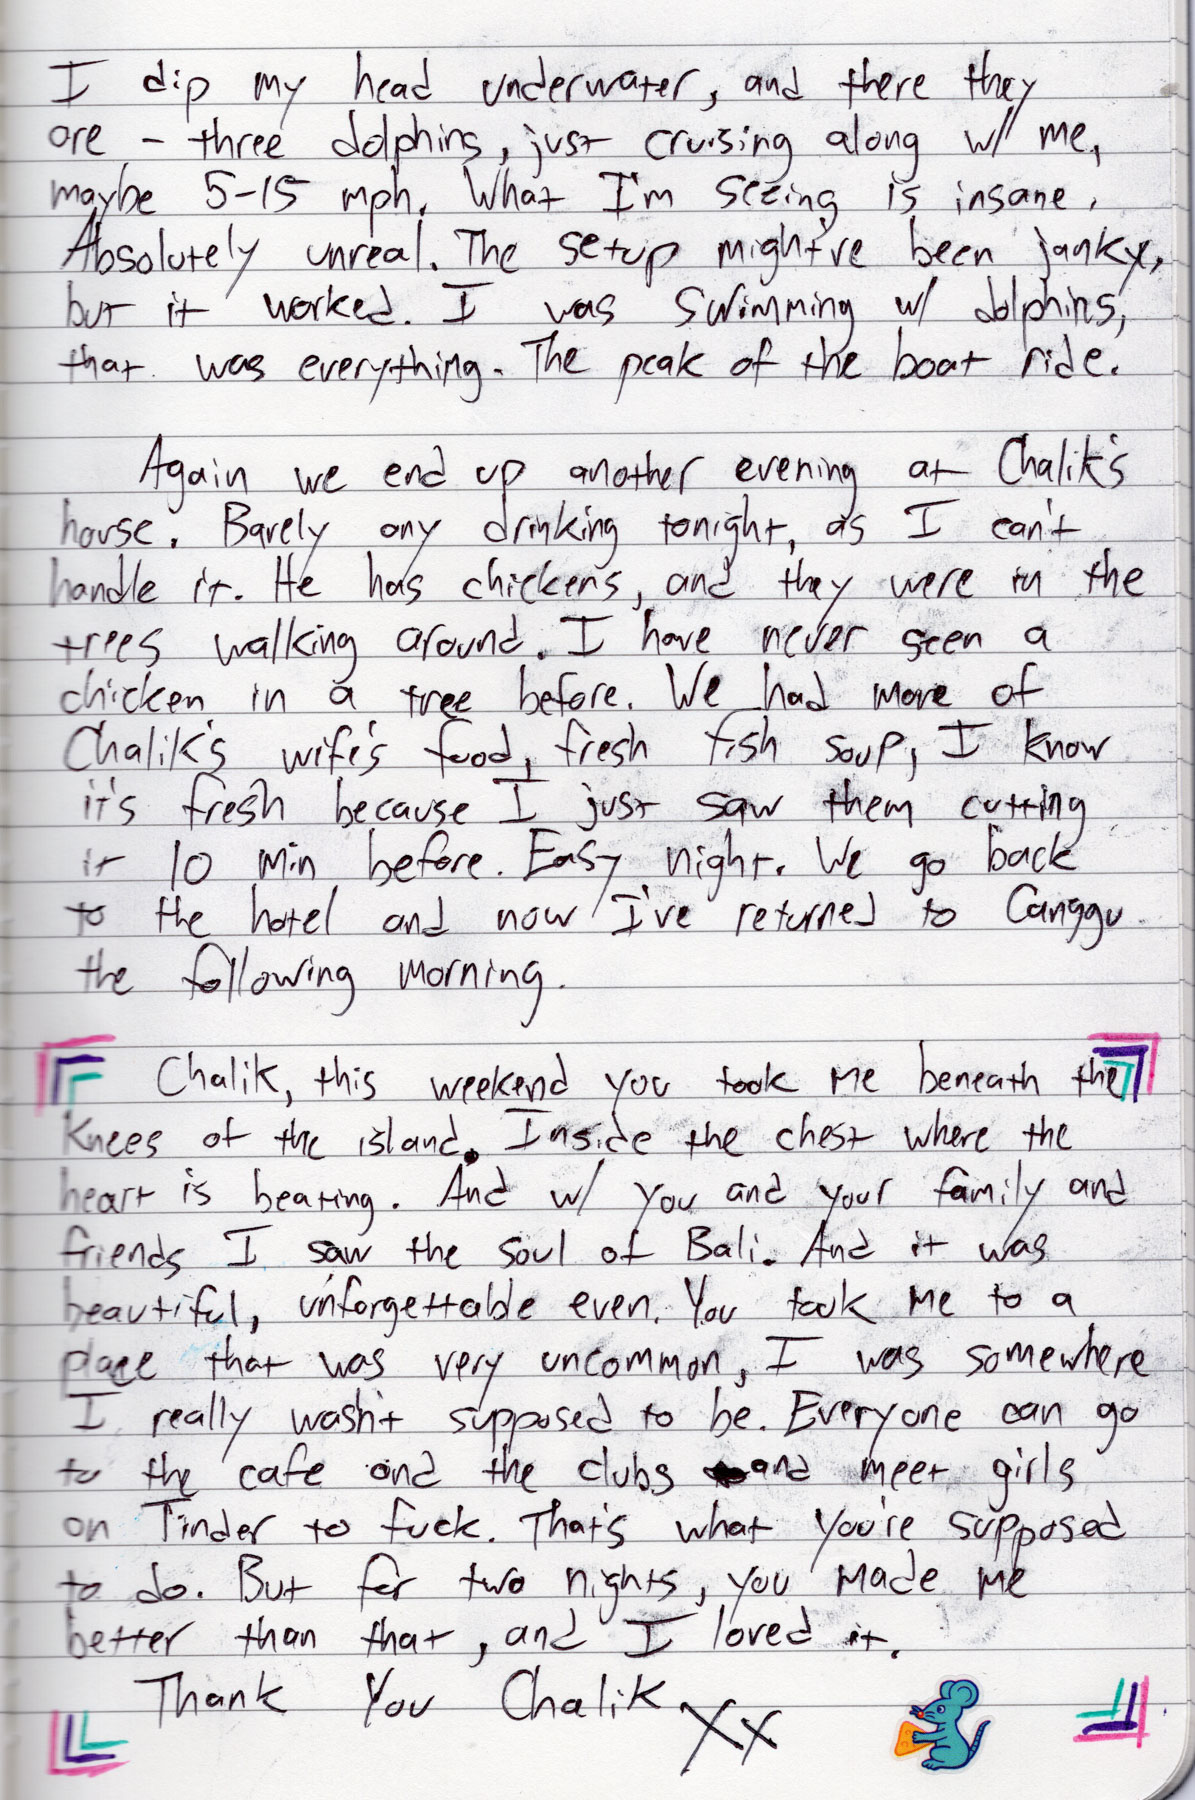 I dip my head underwater, and there they
are - three dolphins, just cruising along w/ me,
maybe 5-15 mph. What I'm seeing is insane.
Absolutely unreal. The setup might've been janky,
but it worked. I was swimming w/ dolphins,
that was everything. The peak of the boat ride.
Again we end up another evening at Chalik's
house. Barely any drinking tonight, as I can't
handle it. He has chickens, and they were in the
trees walking around. I have never seen a
chicken in a tree before. We had more of
Chalik's wife's food, fresh fish soup, I know
it's fresh because I just saw them cutting
it 10 min before. Easy night. We go back
to the hotel and now I've returned to Canggu
the following morning.
Chalik, this weekend you took me beneath the
knees of the island. Inside the chest where the
heart is beating. And w/ you and your family and
friends I saw the soul of Bali. And it was
beautiful, unforgettable even. You took me to a
place that was very uncommon, I was somewhere
I really wasn't supposed to be. Everyone can go
to the cafe and the clubs and meet girls
on Tinder to fuck. That's what you're supposed
to do. But for two nights, you made me
better than that, and I loved it.
Thank You Chalik XX